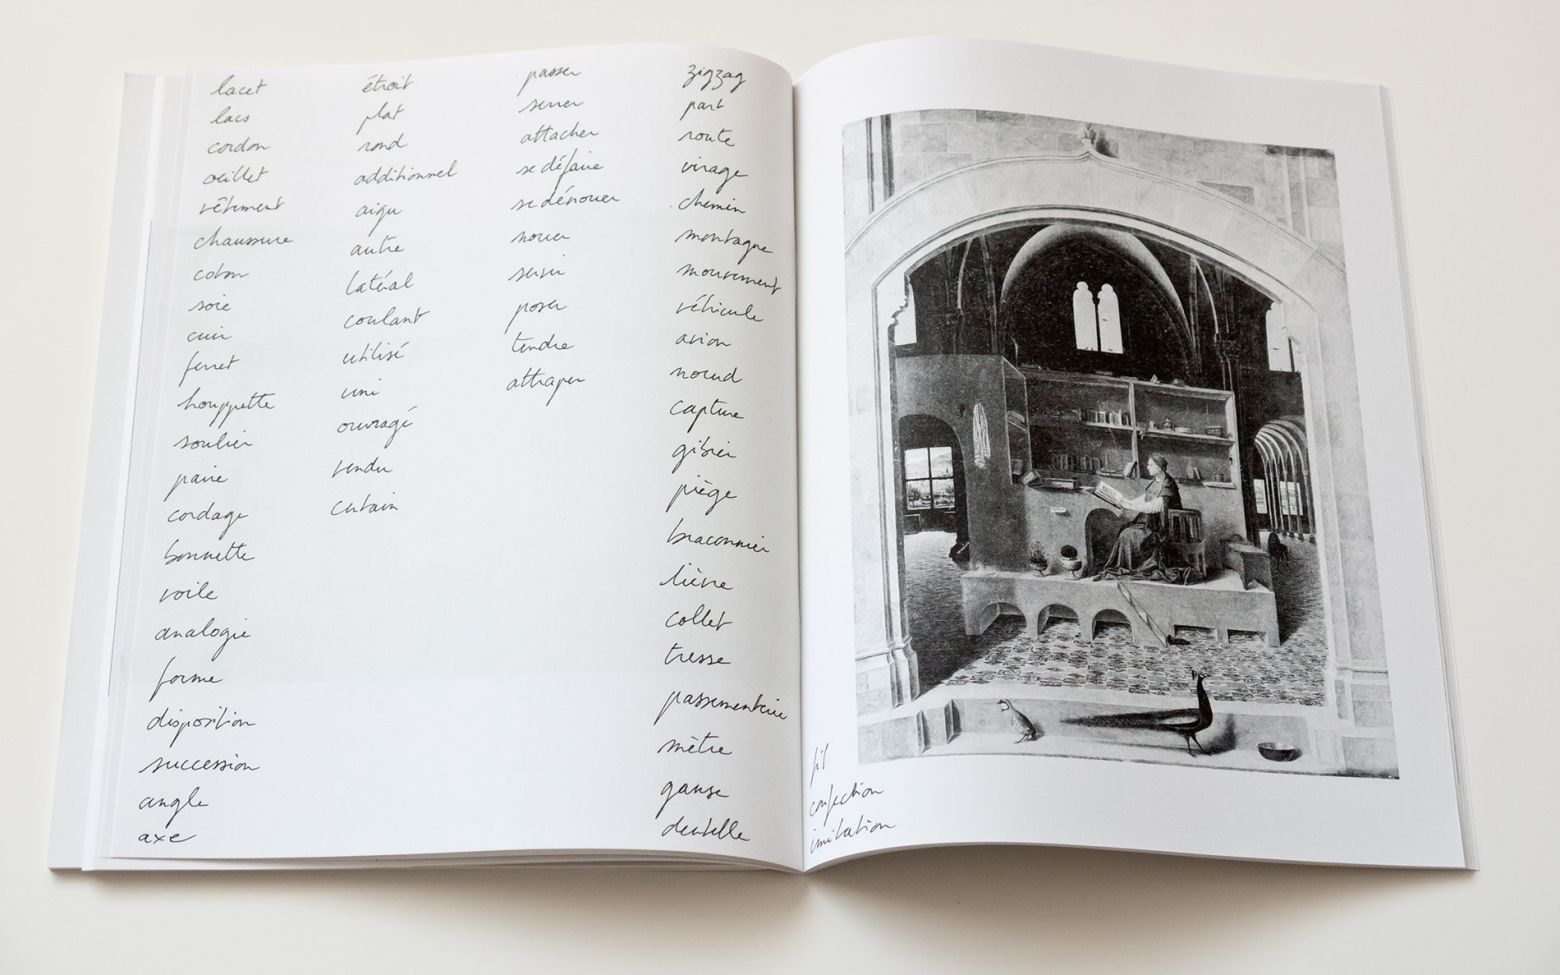 lacet
lacs
cordon
œillet
vêtement
chaussure
coton
soie
cuir
ferret
houppette
soulier
paire
cordage
bonnette
voile
analogie
forme
disposition
succession
angle
axe
étroit
plat
rond
additionnel
aigu
autre
latéral
coulant
utilisé
uni
ouvragé
vendu
certain
passer
serrer
attacher
se défaire
se dénouer
nouer
servir
poser
tendre
attraper
zigzag
part
route
virage
chemin
montagne
mouvement
véhicule
avion
nœud
capture
gibier
piège
braconnier
lièvre
collet
tresse
passementerie
mètre
ganse
dentelle
fil
confection
imitation